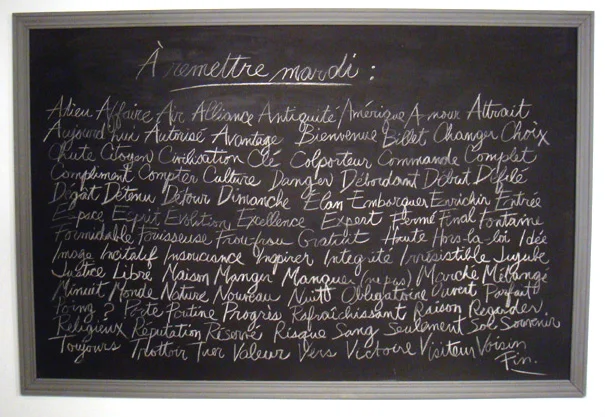 À remettre mardi :
Adieu Affaire Air Alliance Antiquité Amérique Amour Attrait
Aujourd'hui Autorisé Avantage Bienvenue Billet Changer Choix
Chute Citoyen Civilisation Clé Colporteur Commande Complet
Complément Compter Culture Danger Débordant Début Défilé
Dégât Détenu Détour Dimanche Élan Embarquer Enrichir Entrée
Espace Esprit Évolution Excellence Expert Fermé Final Fontaine
Formidable Fouisseuse Frou-frou Gratuit Haute Hors-la-loi Idée
Image Incitatif Insouciance Inspirer Intégrité Irrésistible Jujube
Justice Libre Maison Manger Manquer (ne pas) Marché Mélangé
Minuit Monde Nature Nouveau Nuit Obligatoire Ouvert Parfait
Poing ? Porte Portine Progrès Rafraîchissant Raison Regarder
Religieux Réputation Réservé Risque Sang Seulement Sol Souvenir
Toujours Trottoir Tuer Valeur Vers Victoire Visiteur Voisin
Fin.